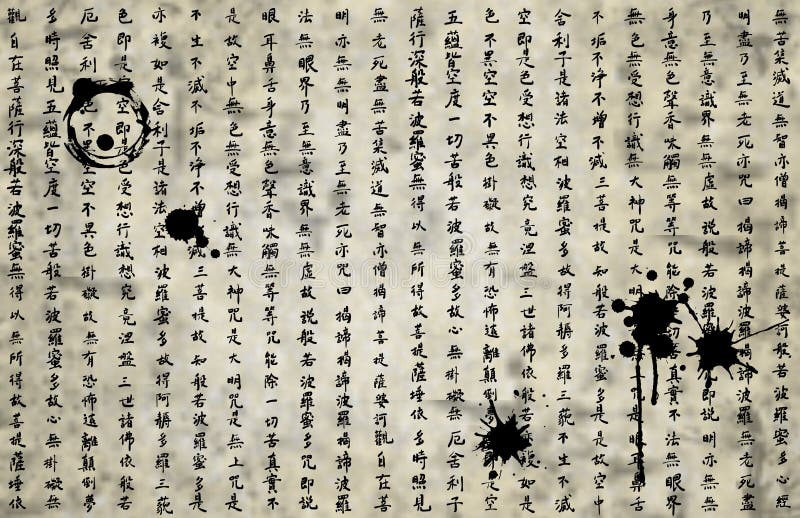 觀自在菩薩行深般若波羅蜜無得以無所得故菩提薩埵依
多時照見五蘊皆空度一切苦般若波羅蜜多故心無掛礙無
厄舍利子色不異空空不異色掛礙故無有恐怖遠離顛倒夢
色即是空空即是色受想行識想究竟涅盤三世諸佛依般若
亦複如是舍利子是諸法空相波羅蜜多故得阿耨多羅三藐
不生不滅不垢不淨不增滅三菩提故知般若波羅蜜多是
是故空中無色無受想行識無大神咒是大明咒是無上咒是
眼耳鼻舌身意無色聲香味觸無等等咒能除一切苦真實不
法無眼界乃至無意識界無無虛故說般若波羅蜜多咒即說
明亦無無明盡乃至無老死亦咒曰揭諦揭諦波羅揭諦波羅
無老死盡無苦集滅道無智亦僧揭諦菩提薩婆訶觀自在菩
薩行深般若波羅蜜無得以無所得故菩提薩埵依多時照見
五蘊皆空度一切苦般若波羅蜜多故心無掛礙無厄舍利子
色不異空空不異色掛礙故無有恐怖遠離顛倒是
空即是色受想行識想究竟涅盤三世諸佛依般若亦複如是
舍利子是諸法空相波羅蜜多故得阿耨多羅三藐不生不滅
不垢不淨不增不滅三菩提故知般若波羅蜜多是是故空中
無色無受想行識無大神咒是大明咒是眼耳鼻舌
身意無色聲香味觸無等等咒能除切苦真實不法無眼界
乃至無意識界無無虛故說般若波羅咒即說明亦無無
明盡乃至無老死亦咒曰揭諦揭諦波羅揭諦無老死盡
無苦集滅道無智亦僧揭諦菩提薩婆訶般若波羅蜜多心經